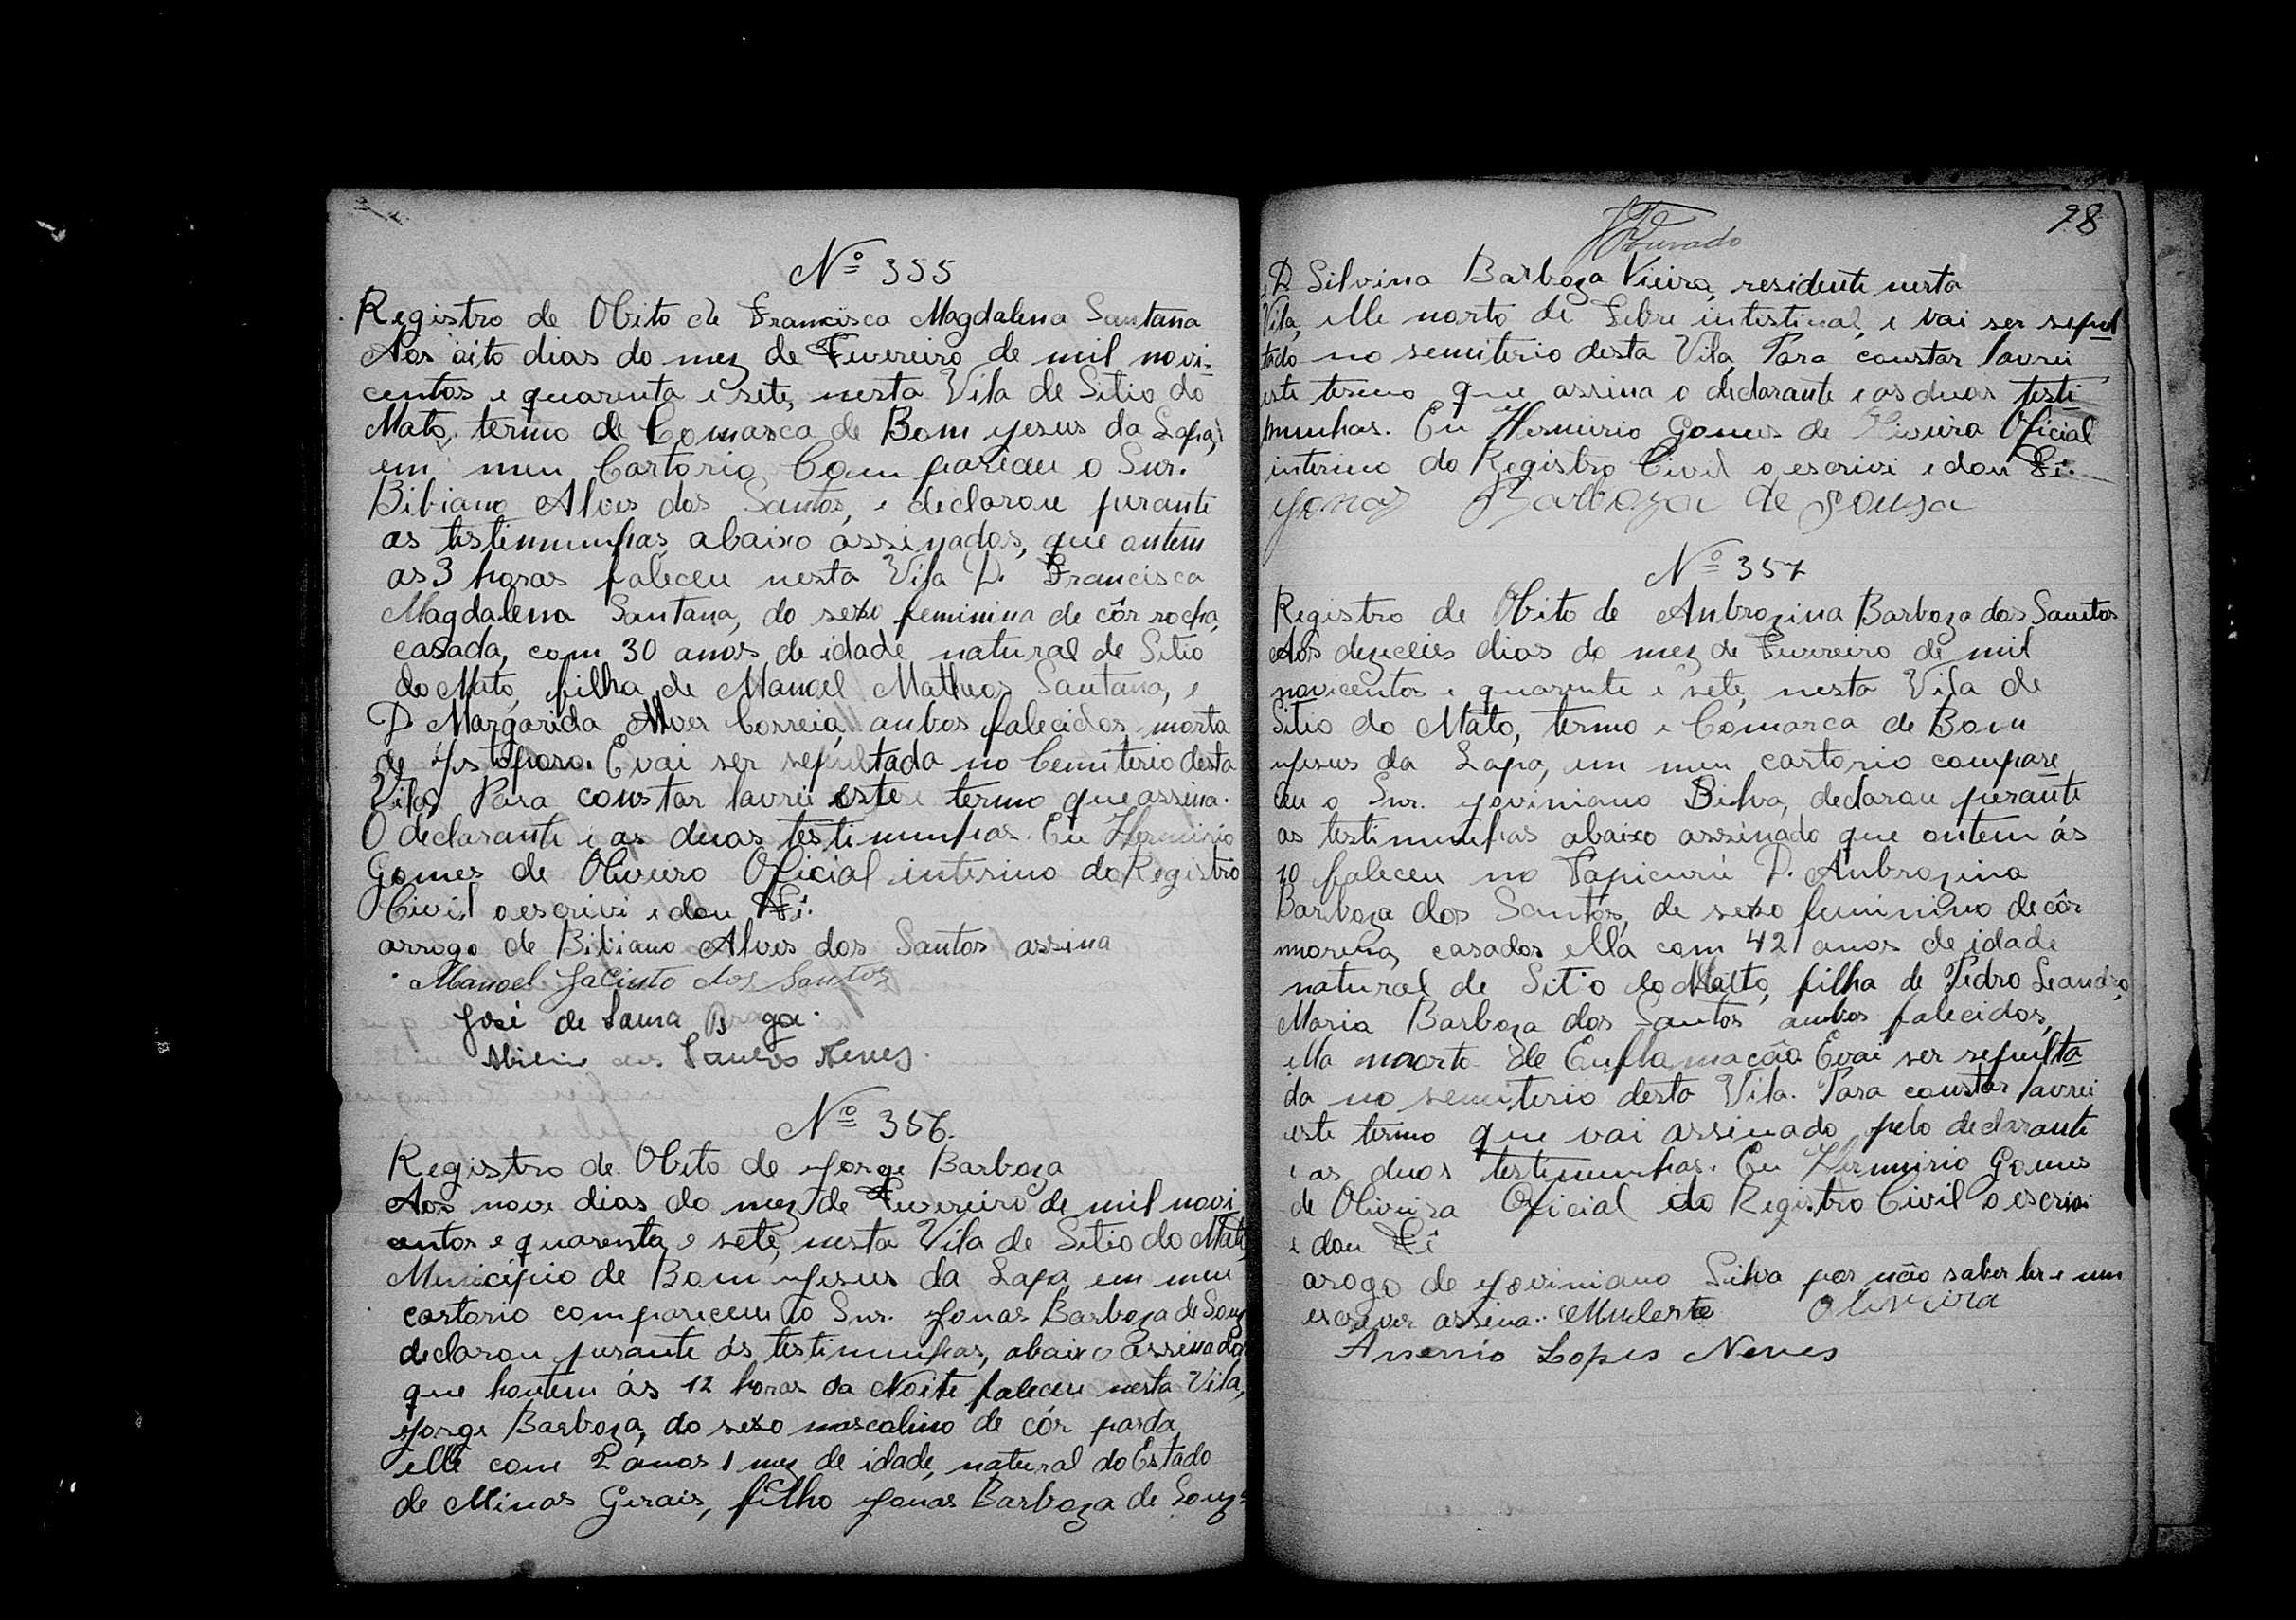 Nº 355
Registro de Obito de Francisca Magdalena Santana
Aos oito dias do mez de Fevereiro de mil novi-
centos e quarenta e sete, nesta Vila de Sitio do
Mato, termo de Comarca de Bom Yesus da Lapa,
em meu Cartorio Compareceu o Snr.
Bibiano Alves dos Santos, e declarou perante
as testimunhas abaixo assinados, que ontem
as 3 horas faleceu nesta Vila D. Francisca
Magdalena Santana, do sexo feminina de côr rocha,
casada, com 30 anos de idade natural de Sitio
do Mato, filha de Manoel Matheos Santana, e
D Margarida Alves Correia, anbos falecidos, morta
de. E vai ser sepultada no Cemiterio desta
Vila, Para constar lavrei este termo que assina.
O declarante e as duas testimunhas. Eu Hermirio
Gomes de Oliveiro Oficial interino do Registro
Civil o escrivi e dou Fé.
arrogo de Bibiano Alves dos Santos assina
Manoel Jacinto dos Santos
José de Braga.
Santos Neves.
Nº 356.
Registro de Obito de Yorge Barboza
Aos nove dias do mez de Fevereiro de mil novi
centos e quarenta e sete, nesta Vila de Sitio do Mato,
Municipio de Bom Yesus da Lapa, em meu
cartorio compareceu o Snr. Yonas Barboza de Souz
declarou perante ás testimunhas, abaixo assinados
que hontem ás 12 horas da Noite faleceu nesta Vila,
Yorge Barboza, do sexo mascolino de côr parda,
elle com 2 anos 1 mez de idade, natural do Estado
de Minas Gerais, filho Yonas Barboza de Souz
98
Dourado
e D Silvina Barboza Vieira, residente nesta
Vila, elle morto de Febre intestinal, e vai ser sepul
tado no semiterio desta Vila, Para constar lavrei
este termo que assina o declarante e as duas testi
munhas. Eu Hermirio Gomes de Oliveira Oficial
interino do Registro Civil o escrivi e dou Fé.
Yonas Barboza de Souza
Nº 357
Registro de Obito de Anbrozina Barboza dos Santos
Aos dezeceis dias do mez de Fevereiro de mil
novicentos e quarente e sete, nesta Vila de
Sitio do Mato, termo e Comarca de Bom
Yesus da Lapa, em meu cartorio compare
ceu o Snr. Yoviniano Silva, declarou perante
as testimunhas abaixo assinado que ontem ás
10 faleceu no Papicurú D. Anbrozina
Barboza dos Santos, de sexo feminino de côr
morena, casados ella com 42 anos de idade
natural de Sitio do Matto, filha de Pedro Leandro,
Maria Barboza dos Santos anbos falecidos,
ella morto de Enflamacão E vai ser sepulta
da no semiterio desta Vila. Para constar lavrei
este termo que vai assinado pelo declarante
e as duas testimunhas. Eu Hermirio Gomes
de Oliveira Oficial do Registro Civil o escrivi
e dou Fé
arogo de Yoviniano Silva por não saber ler e nem
escrever assina. Oliveira
Arsenio Lopes Neves